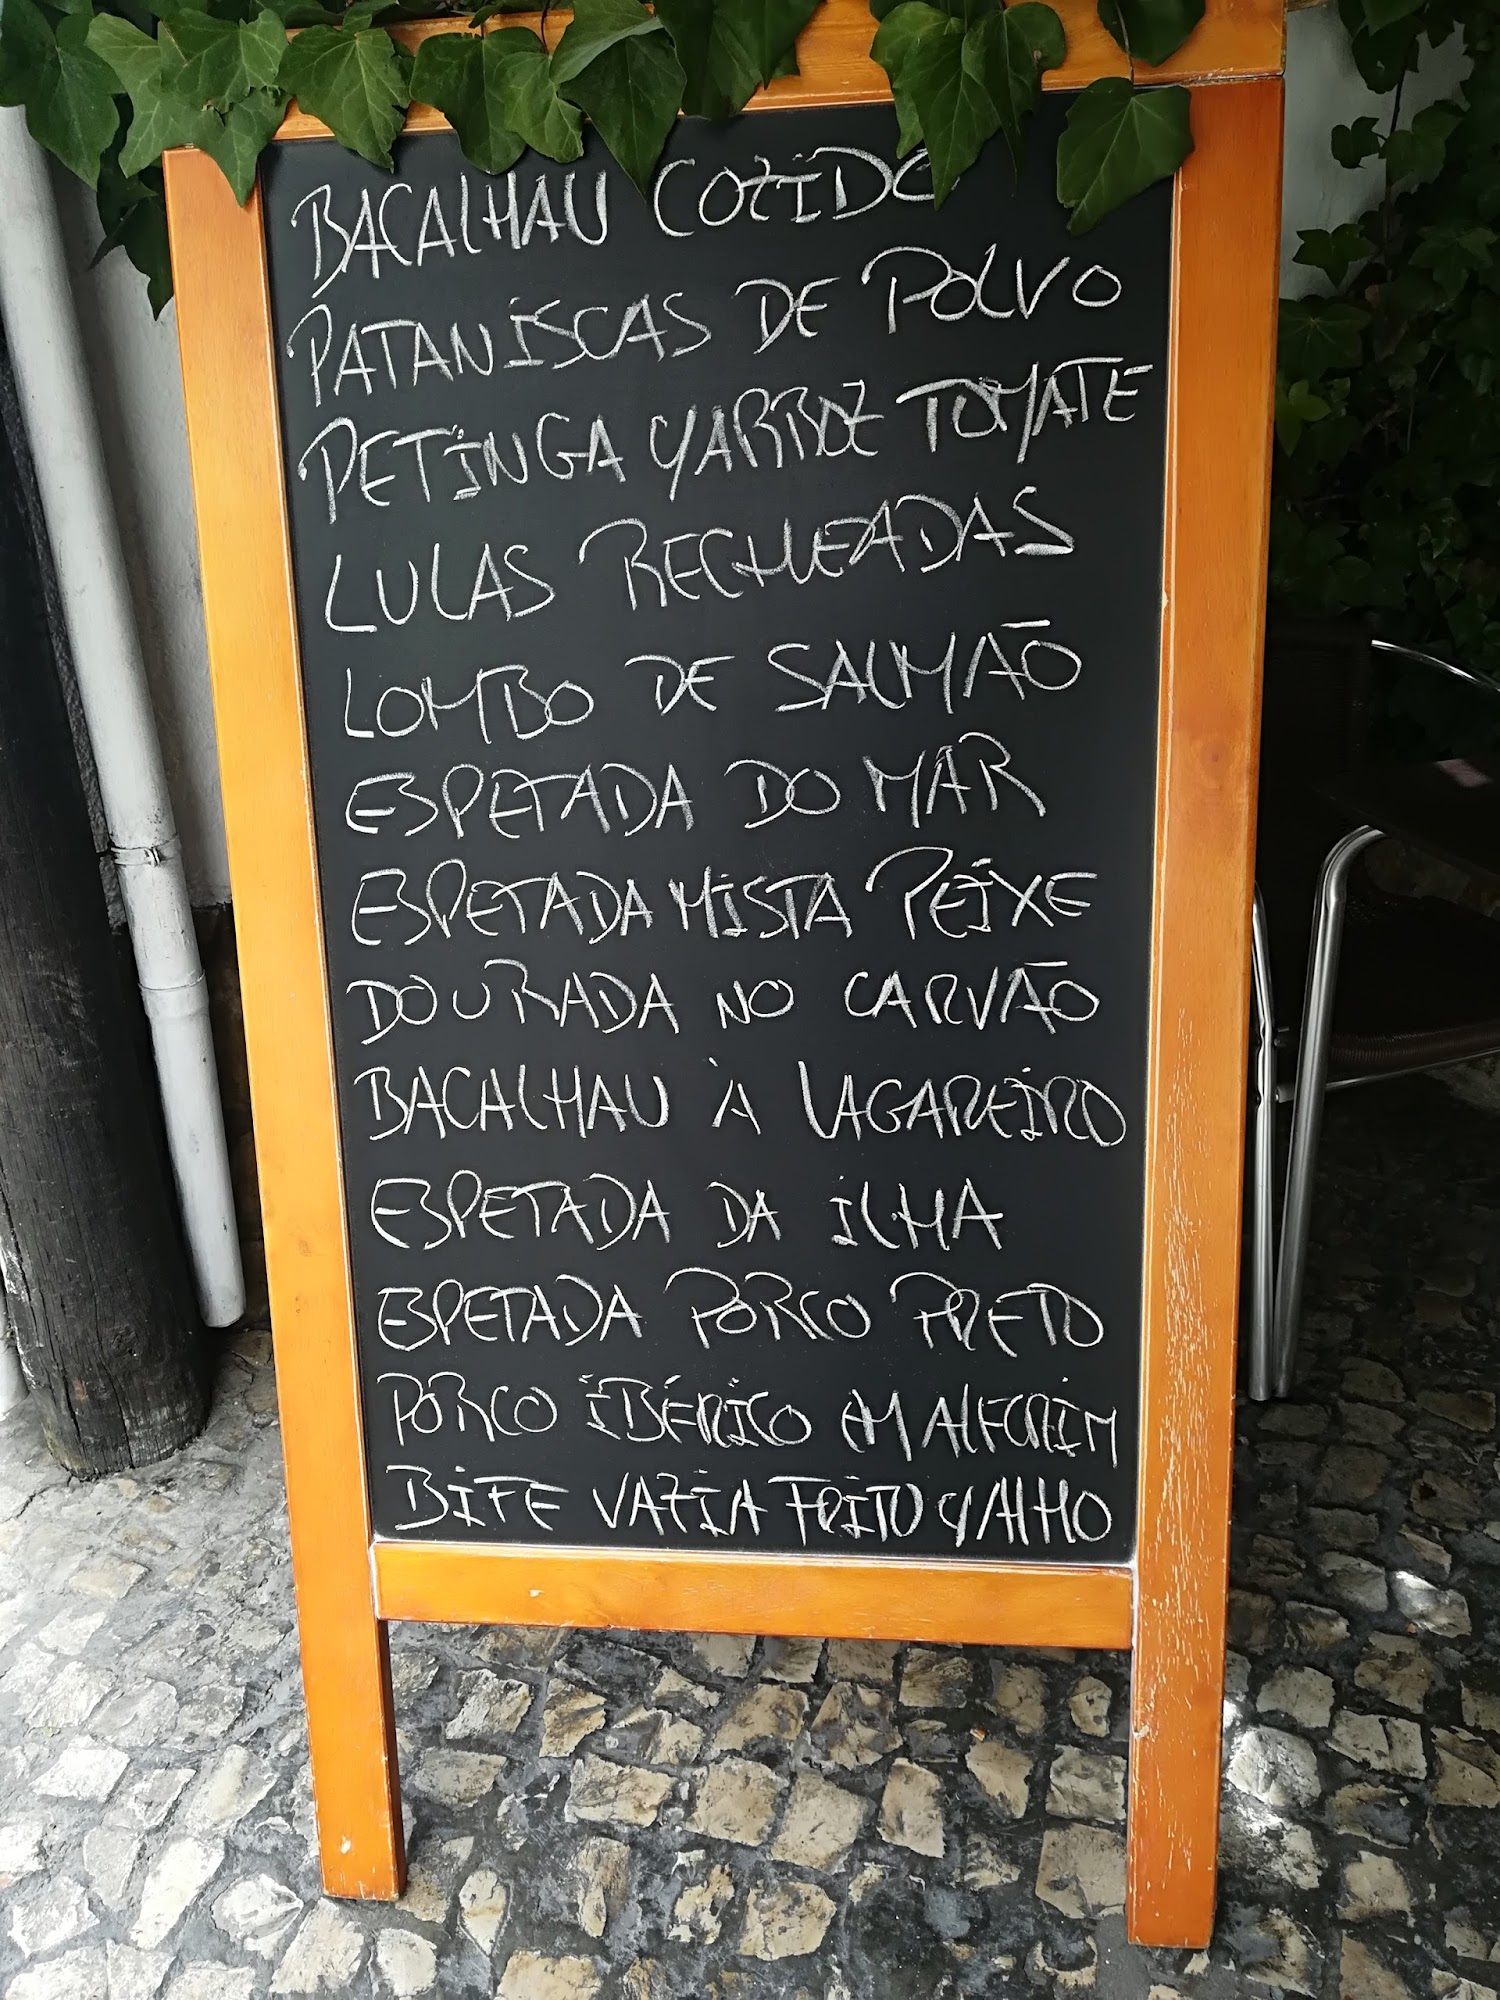 BACALHAU COZIDO
PATANISCAS DE POLVO
PETINGA C/ARROZ TOMATE
LULAS RECHEADAS
LOMBO DE SALMÃO
ESPETADA DO MAR
ESPETADA MISTA PEIXE
DOURADA NO CARVÃO
BACALHAU À LAGAREIRO
ESPETADA DA ILHA
ESPETADA PORCO PRETO
PORCO IBÉRICO EM ALECRIM
BIFE VAZIA FRITO C/ALHO